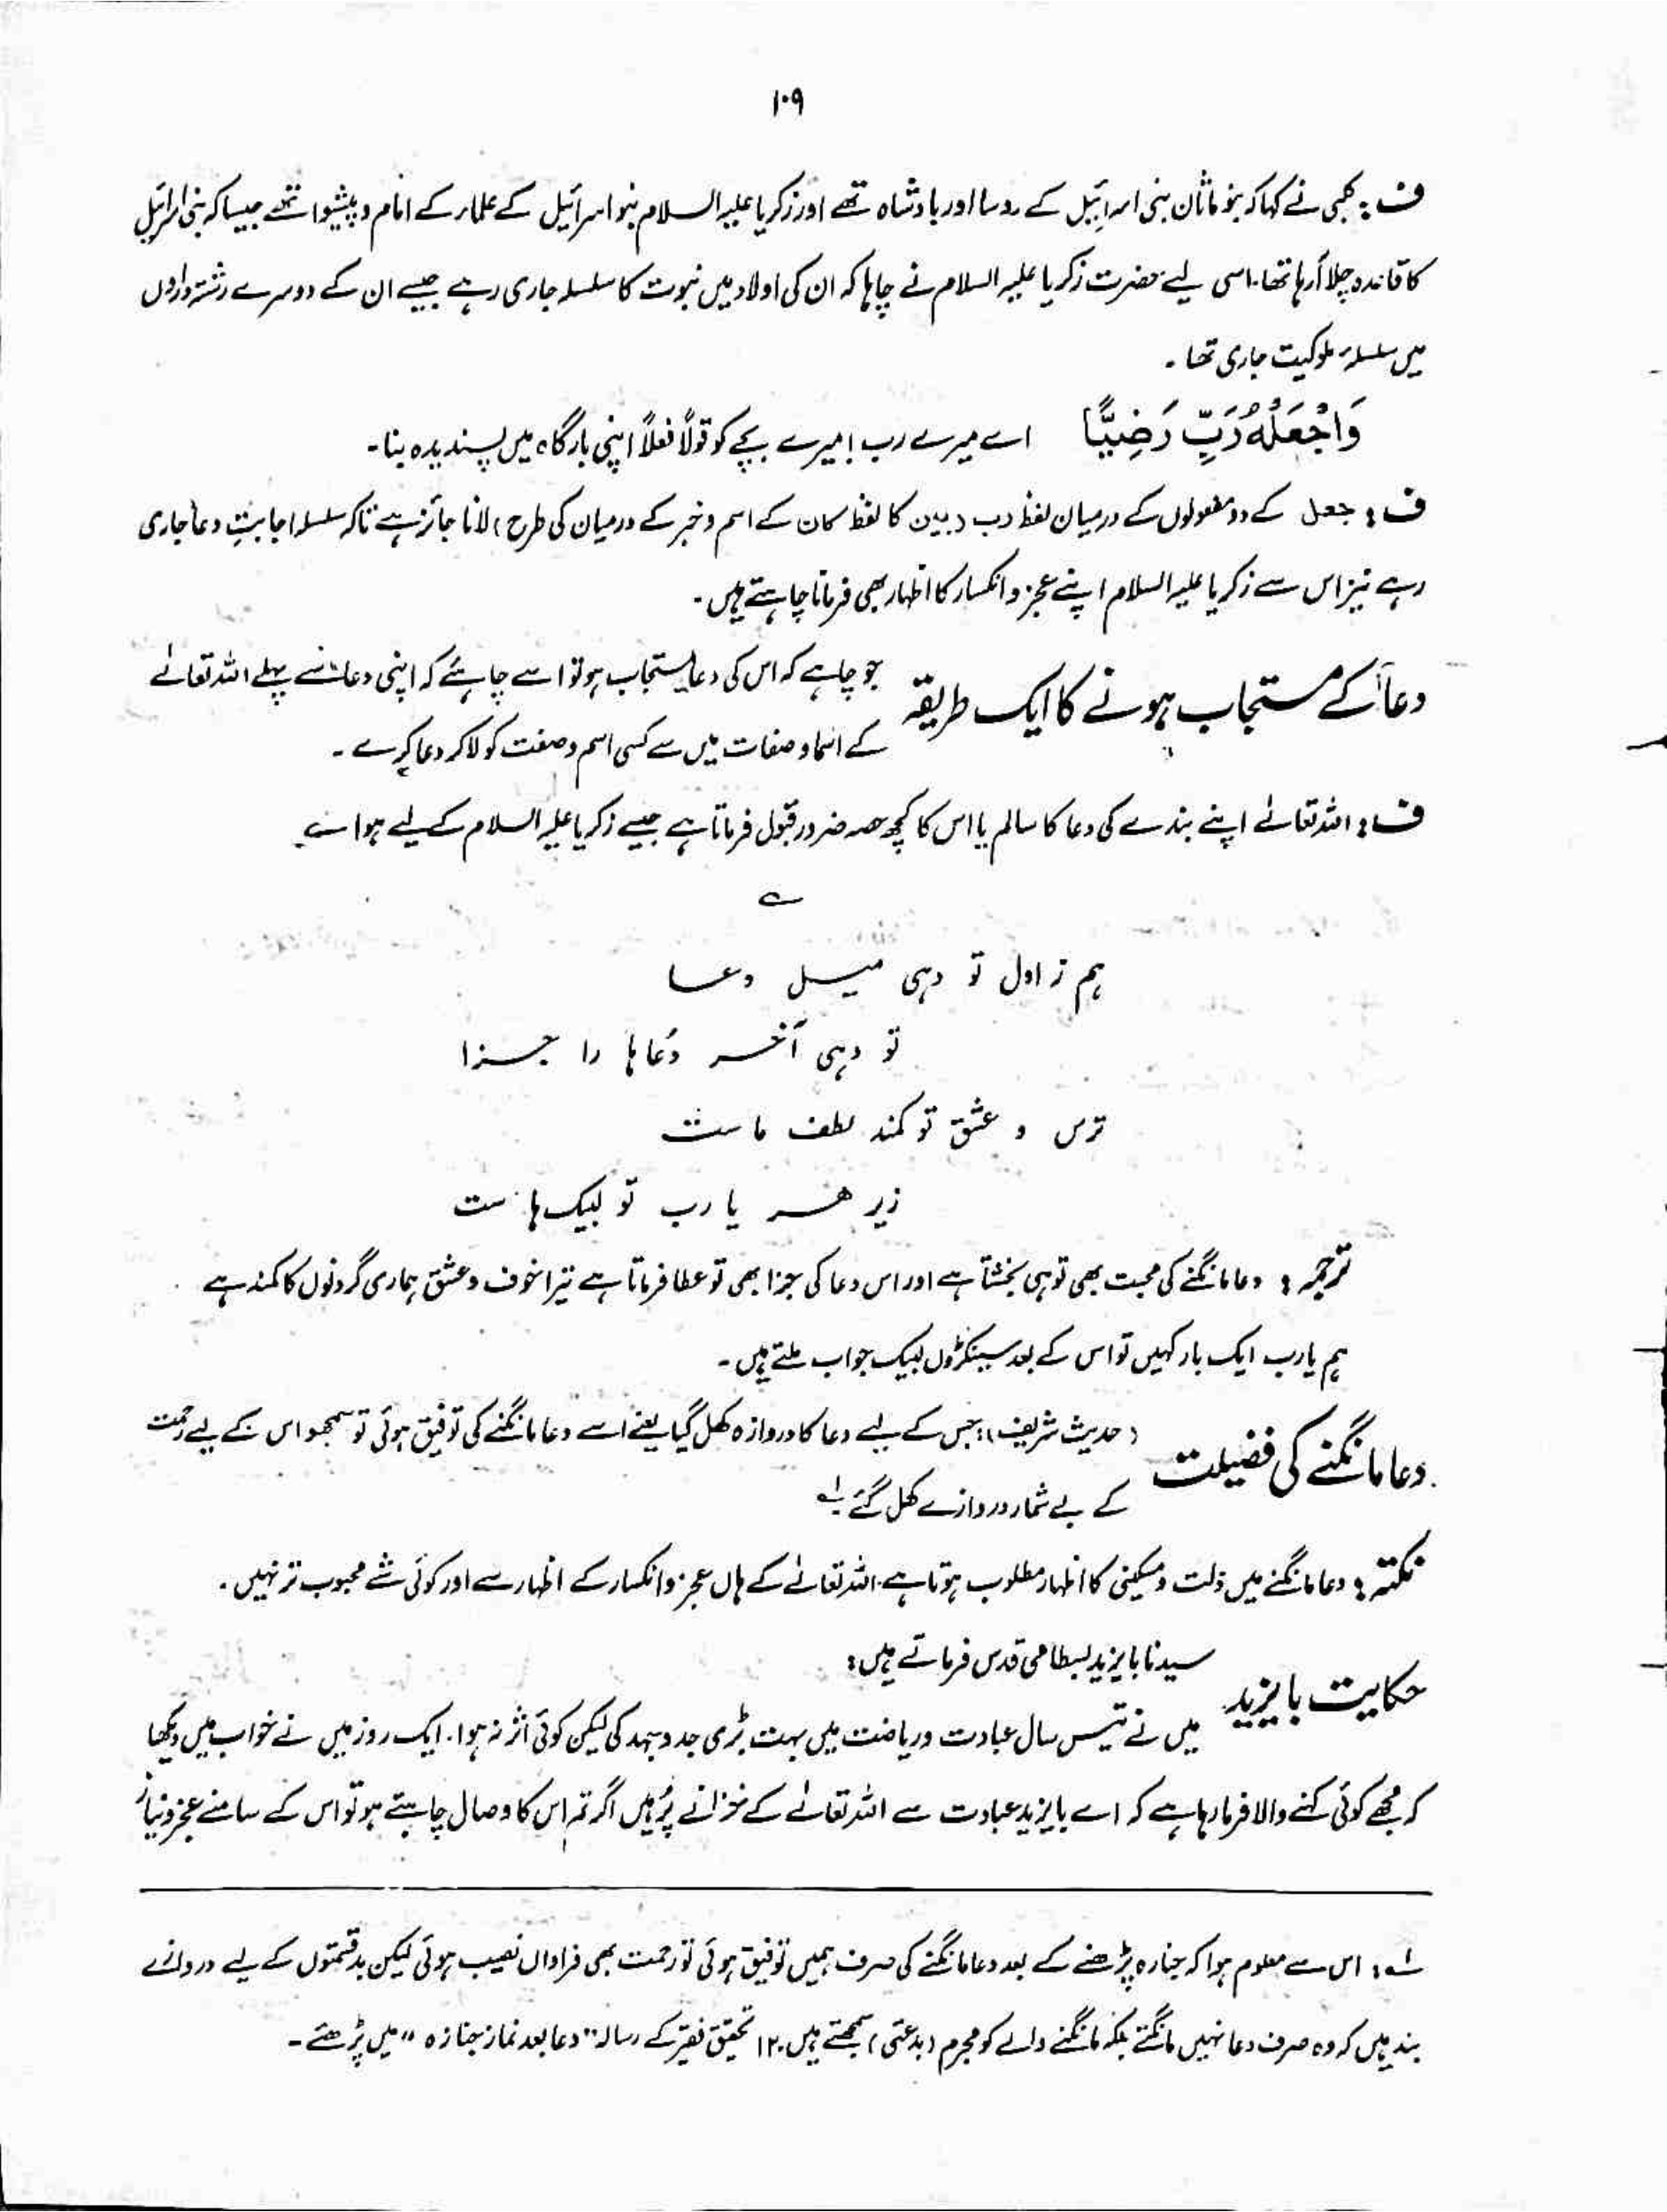 ۱۰۹
ف : کلبی نے کہا کہ بنو ماثان بنی اسرائیل کے روسا اور بادشاہ تھے اور زکریا علیہ السلام بنو اسرائیل کے علماء کے امام و پیشوا تھے جیسا کہ بنی اسرائیل
کا قاعدہ چلا آ رہا تھا۔ اسی لیے حضرت زکریا علیہ السلام نے چاہا کہ ان کی اولاد میں نبوت کا سلسلہ جاری رہے جیسے ان کے دوسرے رشتہ داروں
میں سلسلہ ملوکیت جاری تھا ۔
وَاجْعَلْهُ رَبِّ رَضِيًّا اے میرے رب! میرے بچے کو قولاً فعلاً اپنی بارگاہ میں پسندیدہ بنا۔
ف : جعل کے دو مفعولوں کے درمیان لفظ رب (بین کا لفظ کان کے اسم و خبر کے درمیان کی طرح) لانا جائز ہے تاکہ سلسلہ اجابتِ دعا جاری
رہے نیز اس سے زکریا علیہ السلام اپنے عجز و انکسار کا اظہار بھی فرمانا چاہتے ہیں ۔
دعا کے مستجاب ہونے کا ایک طریقہ جو چاہے کہ اس کی دعا مستجاب ہو تو اسے چاہئے کہ اپنی دعا سے پہلے اللہ تعالےٰ
کے اسما و صفات میں سے کسی اسم و صفت کو لا کر دعا کرے ۔
ف : اللہ تعالےٰ اپنے بندے کی دعا کا سالم یا اس کا کچھ حصہ ضرور قبول فرماتا ہے جیسے زکریا علیہ السلام کے لیے ہوا ہے
ے
ہم ز اول تو دہی میل دعا
تو دہی آخر دعاہا را جزا
ترس و عشق تو کمند لطف ماست
زیر ھر یا رب تو لبیک ہا ست
ترجمہ : دعا مانگنے کی محبت بھی تو ہی بخشتا ہے اور اس دعا کی جزا بھی تو عطا فرماتا ہے تیرا خوف و عشق ہماری گردنوں کا کمند ہے
ہم یارب ایک بار کہیں تو اس کے بعد سینکڑوں لبیک جواب ملتے ہیں ۔
دعا مانگنے کی فضیلت (حدیث شریف) : جس کے لیے دعا کا دروازہ کھل گیا یعنے اسے دعا مانگنے کی توفیق ہوئی تو سمجھو اس کے لیے رحمت
کے بے شمار دروازے کھل گئے ۱؎
نکتہ : دعا مانگنے میں ذلت و مسکینی کا اظہار مطلوب ہوتا ہے۔ اللہ تعالےٰ کے ہاں عجز و انکسار کے اظہار سے اور کوئی شے محبوب تر نہیں ۔
حکایت بایزید سیدنا بایزید بسطامی قدس فرماتے ہیں :
میں نے تیس سال عبادت و ریاضت میں بہت بڑی جدوجہد کی لیکن کوئی اثر نہ ہوا۔ ایک روز میں نے خواب میں دیکھا
کہ مجھے کوئی کہنے والا فرما رہا ہے کہ اے بایزید عبادت سے اللہ تعالےٰ کے خزانے پُر ہیں اگر تم اس کا وصال چاہتے ہو تو اس کے سامنے عجز و نیاز
۱؎ : اس سے معلوم ہوا کہ جنازہ پڑھنے کے بعد دعا مانگنے کی صرف ہمیں توفیق ہوئی تو رحمت بھی فراواں نصیب ہوئی لیکن بدقسمتوں کے لیے دروازے
بند ہیں کہ وہ صرف دعا نہیں مانگتے بلکہ مانگنے والے کو مجرم (بدعتی) سمجھتے ہیں ۔۱۲ تحقیق فقیر کے رسالہ "دعا بعد نماز جنازہ" میں پڑھئے ۔